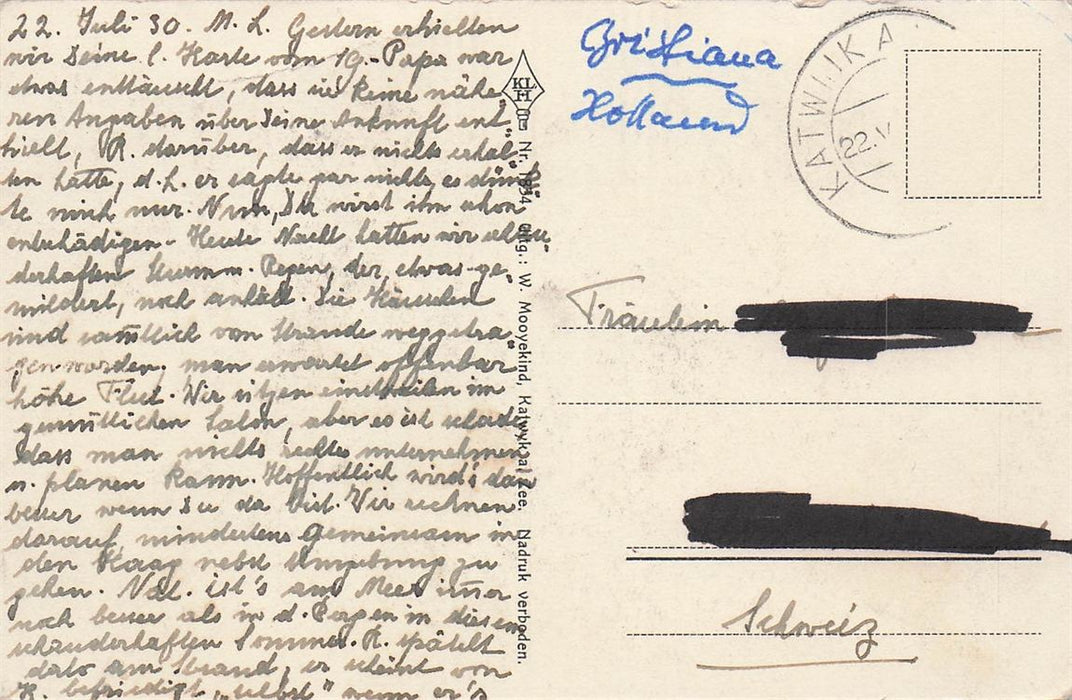 22. Juli 30. M. L. Gestern erhielten
wir Deine l. Karte vom 19.- Papa war
etwas enttäuscht, dass sie keine nähe-
ren Angaben über Deine Ankunft ent-
hielt, R. darüber, dass er nichts erhal-
ten hatte, d.h. er sagte gar nichts, es dünk-
te mich nur. Nun, Du wirst ihn schon
entschädigen - Heute Nacht hatten wir schau-
derhaften Sturm. Regen, der, etwas ge-
mildert, noch anhält. Die Häuschen
sind sämtlich vom Strande weggetra-
gen worden, man erwartet offenbar
hohe Flut. Wir sitzen einstweilen im
gemütlichen Salon, aber es ist schade
dass man nichts rechtes unternehmen
u. planen kann. Hoffentlich wird's dan
besser wenn Du da bist. Wir rechnen
darauf mindestens gemeinsam in
den Haag nebst Umgebung zu
gehen. Nat. ist's am Meer imer
noch besser als in d. Bergen in diesem
schauderhaften Sommer. R. spätelt
dato am Strand, er scheint von
H. befriedigt „selbst" wenn er's
KLH
Nr. 1834 Uitg.: W. Mooyekind, Katwyk a/Zee. Nadruk verboden.
Holland
KATWIJK A
22.V
Fräulein
Schweiz